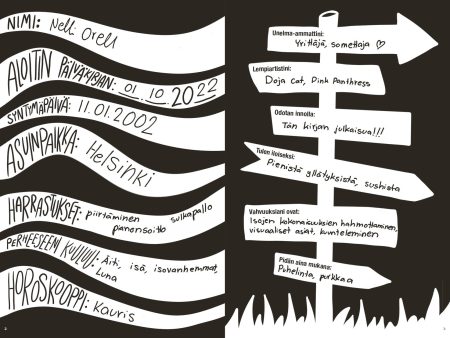 NIMI: Nelli Orell
ALOITIN PÄIVÄKIRJAN: 01.10.2022
SYNTYMÄPÄIVÄ: 11.01.2002
ASUINPAIKKA: Helsinki
HARRASTUKSET: piirtäminen sulkapallo
pianonsoitto
PERHEESEEN KUULUU: Äiti, isä, isovanhemmat,
Luna
HOROSKOOPPI: Kauris
Unelma-ammattini:
Yrittäjä, somettaja ♡
Lempiartistini:
Doja Cat, Pink Panthress
Odotan innolla:
Tän kirjan julkaisua!!!
Tulen iloiseksi:
Pienistä yllätyksistä, sushista
Vahvuuksiani ovat:
Isojen kokonaisuuksien hahmottaminen,
visuaaliset asiat, kuunteleminen
Pidän aina mukana:
Puhelinta, purkkaa